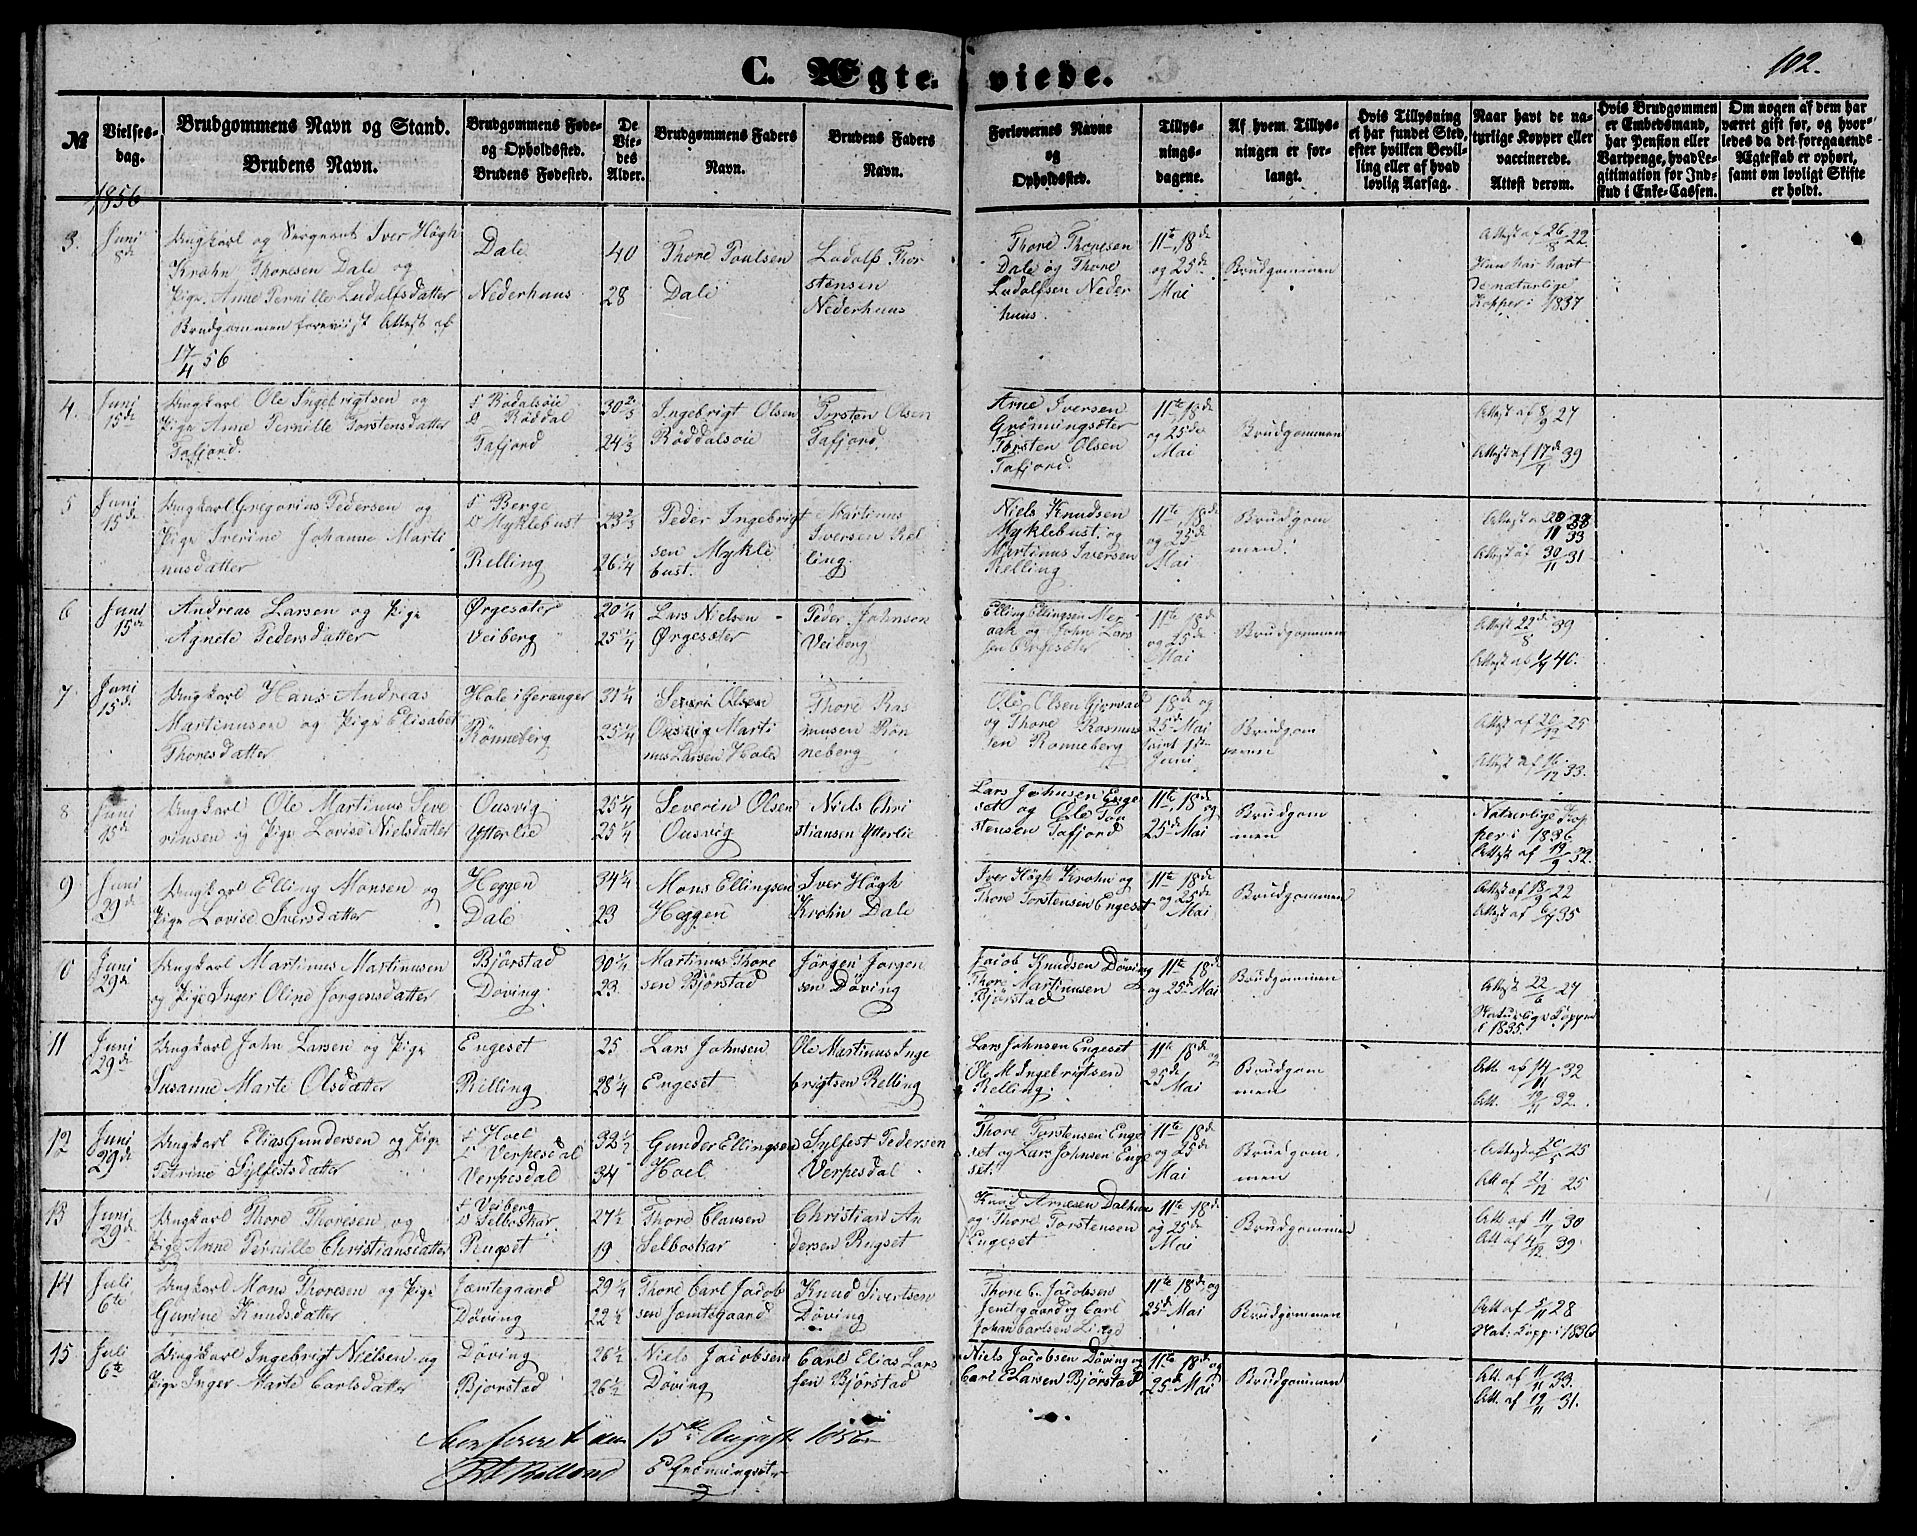 102.
C. Ægte-viede.
№
Vielses-
dag.
Brudgommens Navn og Stand.
Brudens Navn.
Brudgommens Føde-
og Opholdssted.
Brudens Fødested.
De
Vie-
des
Alder.
Brudgommens Faders
Navn.
Brudens Faders
Navn.
Forlovernes Navne
og
Opholdssted.
Tillys-
nings-
dagene.
Af hvem Tillys-
ningen er for-
langt.
Hvis Tillysning
ei har fundet Sted,
efter hvilken Bevil-
ling eller af hvad
lovlig Aarsag.
Naar havt de na-
tyrlige Kopper eller
vaccinerede.
Attest derom.
Hvis Brudgommen
er Embedsmand,
har Pension eller
Vartpenge, hvad Le-
gitimation for Ind-
skud i Enke-Cassen.
Om nogen af dem har
været gift før, og hvor-
ledes da det foregaaende
Ægteskab er ophørt,
samt om lovligt Skifte
er holdt.
1856
3. Juni 8de
Ungkarl og Sergeant Iver Høgh
Krohn Thoresen Dale og
Pige Anne Pernille Ludolfsdatter
Brudgommen foreviist Attest af
17/4 56
Dale
Nederhuus
40
28
Thore Poulsen
Dale
Ludolf Thor
stensen
Nederhuus
Thore Thoresen
Dale og Thore
Ludolfsen Neder
huus.
11te, 18de
og 25de
Mai
Brudgommen
Attest af 26/8 22
Hun har havt
de naturlige
Kopper i 1837
4. Juni 15de
Ungkarl Ole Ingebrigtsen og
Pige Anne Pernille Torstensdatter
Tafjord.
F Rødalsøie
O Røddal
Tafjord
30 2/3
24 1/3
Ingebrigt Olsen
Røddalsøie
Torsten Olsen
Tafjord.
Arne Iversen
Grønningsæter
Torsten Olsen
Tafjord.
11te, 18de
og 25de
Mai
Brudgommen
Attest af 8/9 27
Attest af 17de/7 39
5 Juni 15de
Ungkarl Gregorius Pedersen og
Pige Iverine Johanne Marti
nusdatter
F Berge
O Myklebust
Relling
23 2/3
26 1/4
Peder Ingebrigt
sen Mykle
bust.
Martinus
Iversen Rel
ling.
Niels Knudsen
Myklebust og
Martinus Iversen
Relling
11te, 18de
og 25de
Mai
Brudgom
men.
Attest af 30/11 31
6 Juni 15de
Andreas Larsen og Pige
Agnete Pedersdatter
Ørgesæter
Veiberg
20 1/4
25 1/4
Lars Nielsen
Ørgesæter
Peder Johnsen
Veiberg
Elling Ellingsen Mer
aak og John Lars
sen Ørgesæter
11te 18de
og 25de
Mai
Brudgommen
Attest 22de/8 39
7 Juni 15de
Ungkarl Hans Andreas
Martinusen og Pige Elisabet
Thoresdatter
Hole i Geranger
Rønneberg
31 1/4
25 1/4
Severi Olsen
Ousvig Marti
nus Larsen Hole
Thore Ras
musen Røn
neberg
Ole Olsen Gjørvad
og Thore Rasmus
sen Rønneberg
18de og
25de Mai
samt 1ste
Juni
Brudgom
men
Attest af 20/12 25
Attest af 16/12 33.
8 Juni 15de
Ungkarl Ole Martinus Seve
rinsen og Pige Lovise Nielsdatter
Ousvig
Ytterlie
25 1/4
25 1/4
Severin Olsen
Ousvig
Niels Chri
stiansen Ytterlie
Lars Johnsen Enge
set og Ole Tor
stensen Tafjord
11te, 18de og
25de Mai
Brudgom
men
Naturlige Kop
per i 1836
Attest af 19/9 32.
9 Juni 29de
Ungkarl Elling Monsen og
Pige Lovise Iversdatter
Heggen
Dale
34 1/4
23
Mons Ellingsen
Heggen
Iver Høgh
Krohn Dale
Iver Høgh Krohn og
Thore Torstensen Engeset
11te 18de
og 25de
Mai
Brudgommen
Attest af 18/9 22
Attest af 6/7 35
0 Juni 29de
Ungkarl Martinus Martinusen
og Pige Inger Oline Jørgensdatter
Bjørstad
Døving
30 1/4
23
Martinus Thore
sen Bjørstad
Jørgen Jørgen
sen Døving
Jacob Knudsen Døving
Thore Martinusen
Bjørstad
11te 18de
og 25de Mai
Brudgommen
Attest 22/6 27
Naturlige Kopper
i 1835.
11 Juni 29de
Ungkarl John Larsen og Pige
Susanne Marte Olsdatter
Engeset
Relling
25
28 1/4
Lars Johnsen
Engeset
Ole Martinus Inge
brigtsen Relling
Lars Johnsen Engeset
Ole M. Ingebrigtsen
Relling.
11te 18de og
25de Mai
Brudgom
men
Att. af 14/11 32
Att. 19/11 32.
12 Juni 29de
Ungkarl Elias Gundersen og Pige
Petrine Sylfestsdatter
F Hoel
O Verpesdal
Verpesdal
32 1/2
34
Gunder Ellingsen
Hoel
Sylfest Pedersen
Verpesdal
Thore Torstensen Enge
set og Lars Johnsen Enge
set.
11te 18de
og 25de
Mai
Brudgom
men
Attest af 20/5 25
Att. 21/12 25
13 Juni 29de
Ungkarl Thore Thoresen og
Pige Anne Pernille Christiansdatter
F Veiberg
O Selboskar
Rugset
27 1/2
19
Thore Clausen
Selboskar
Christian An
dersen Rugset
Knud Arnesen Dalhuus
og Thore Torstensen
Engeset
11te 18de
og 25de
Mai
Brudgommen
Att af 11/7 30
Att af 4/12 39
14 Juli 6te
Ungkarl Mons Thoresen og Pige
Gurine Knudsdatter
Jemtegaard
Døving
29 1/4
22 1/2
Thore Carl Jacob
sen Jemtegaard
Knud Sivertsen
Døving
Thore C. Jacobsen
Jemtegaard og Carl
Johan Carlsen Linge
11te 18de og
25de Mai
Brudgommen
Att af 5/11 28
Nat. Kopp. i 1836
15 Juli 6te
Ungkarl Ingebrigt Nielsen og
Pige Inger Marte Carlsdatter
Døving
Bjørstad
26 1/2
26 1/2
Niels Jacobsen
Døving
Carl Elias Lars
sen Bjørstad
Niels Jacobsen Døving og
Carl E Larsen Bjørstad
11te 18de og
25de Mai
Brudgommen
Att. af 11/11 33.
Att. af 19/11 31.
Confereret den 15de August 1856
E Grønningsæter